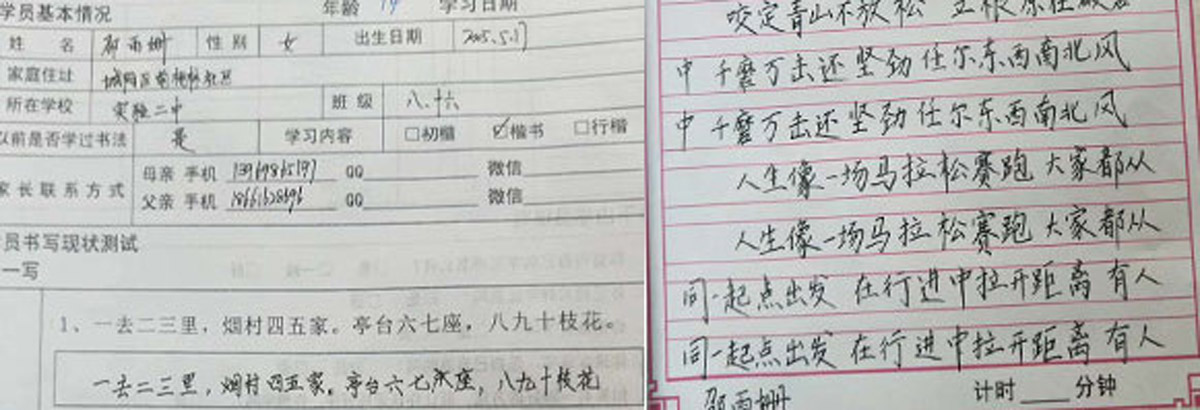 学员基本情况 年龄 14 学习日期
姓 名 邵雨姗 性 别 女 出生日期 2005.5.17
家庭住址
所在学校 实验二中 班 级 八.十六
以前是否学过书法 是 学习内容 □初楷 ☑楷书 □行楷
家长联系方式 母亲 手机 QQ 微信
父亲 手机 QQ 微信
员书写现状测试
一写
1、一去二三里，烟村四五家。亭台六七座，八九十枝花。
一去二三里，烟村四五家。亭台六七座，八九十枝花
咬定青山不放松 立根原在破岩
中 千磨万击还坚劲 任尔东西南北风
中 千磨万击还坚劲 任尔东西南北风
人生像一场马拉松赛跑 大家都从
人生像一场马拉松赛跑 大家都从
同一起点出发 在行进中拉开距离 有人
同一起点出发 在行进中拉开距离 有人
邵雨姗 计时 分钟